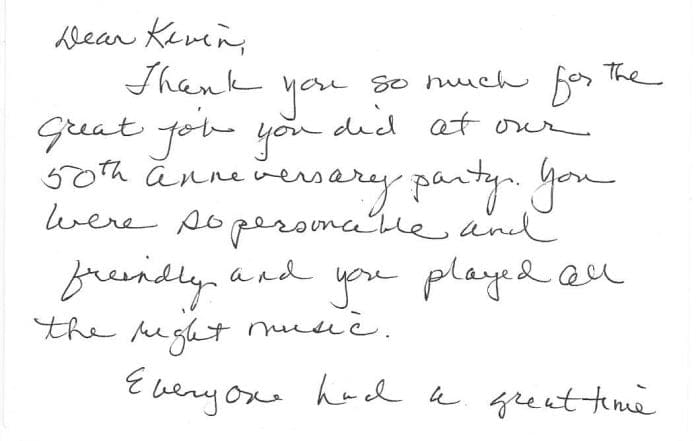 Dear Kevin,
Thank you so much for the
great job you did at our
50th anniversary party. You
were so personable and
freindly and you played all
the right music.
Everyone had a great time